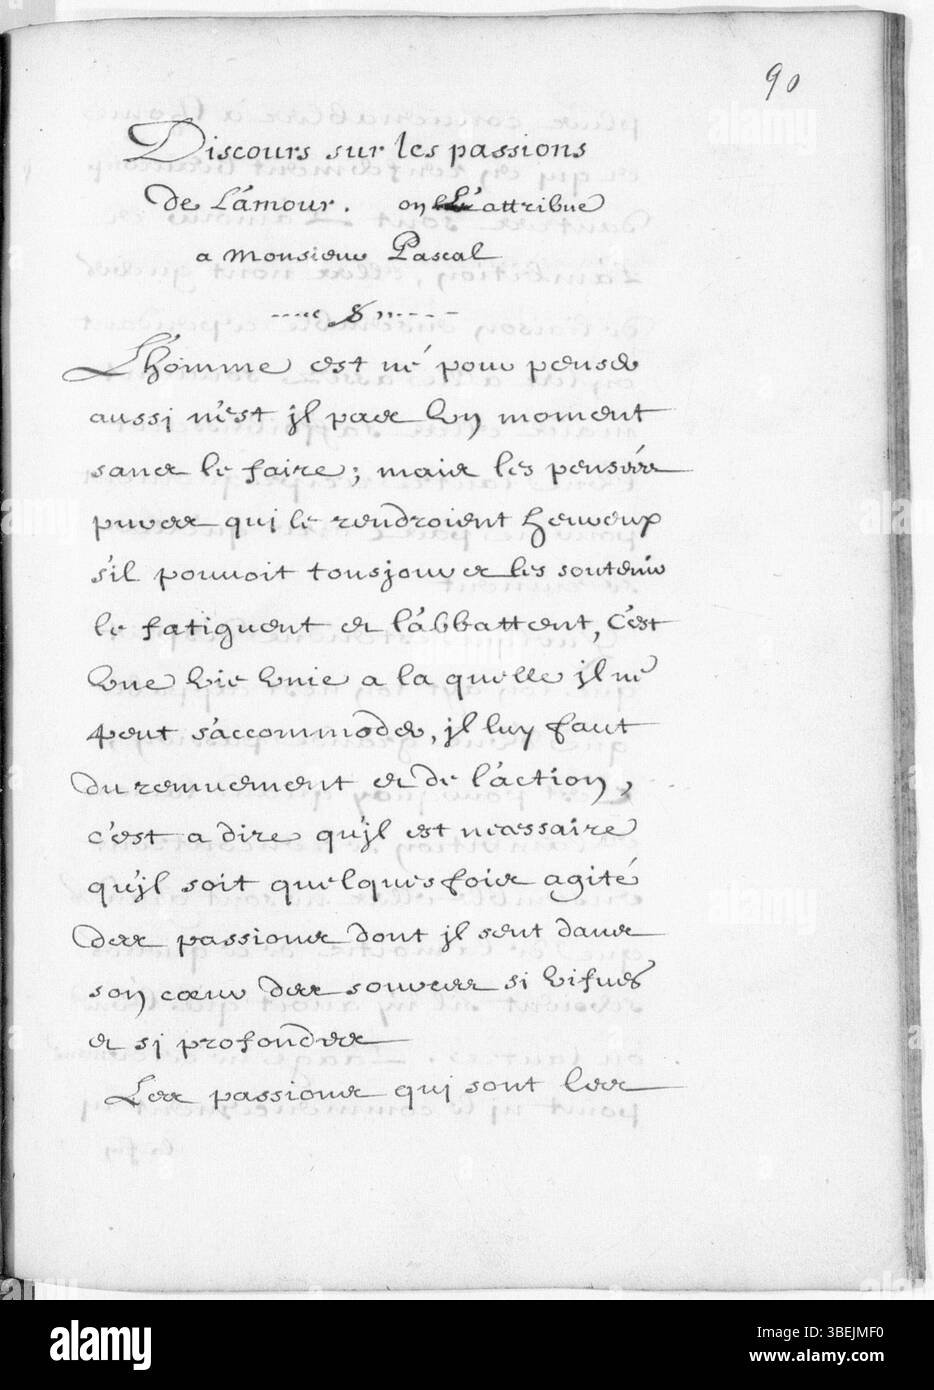 90
Discours sur les passions
de L'amour. on L'attribue
a Monsieur Pascal
L'homme est né pour penser
aussi n'est jl pas un moment
sans le faire; mais les penseés
pures qui le rendroient heureux
s'il pouvoit tousjours les soutenir
le fatiguent et l'abbattent, C'est
une vie unie a la quelle jl ne
peut s'accommoder, jl luy faut
du remuement et de l'action,
c'est a dire qu'jl est necessaire
qu'jl soit quelquesfois agité
des passions dont jl sent dans
son cœur des sources si vifues
et si profondes
Les passions qui sont les
alamy
alamy
Image ID: 3BEJMF0
www.alamy.com